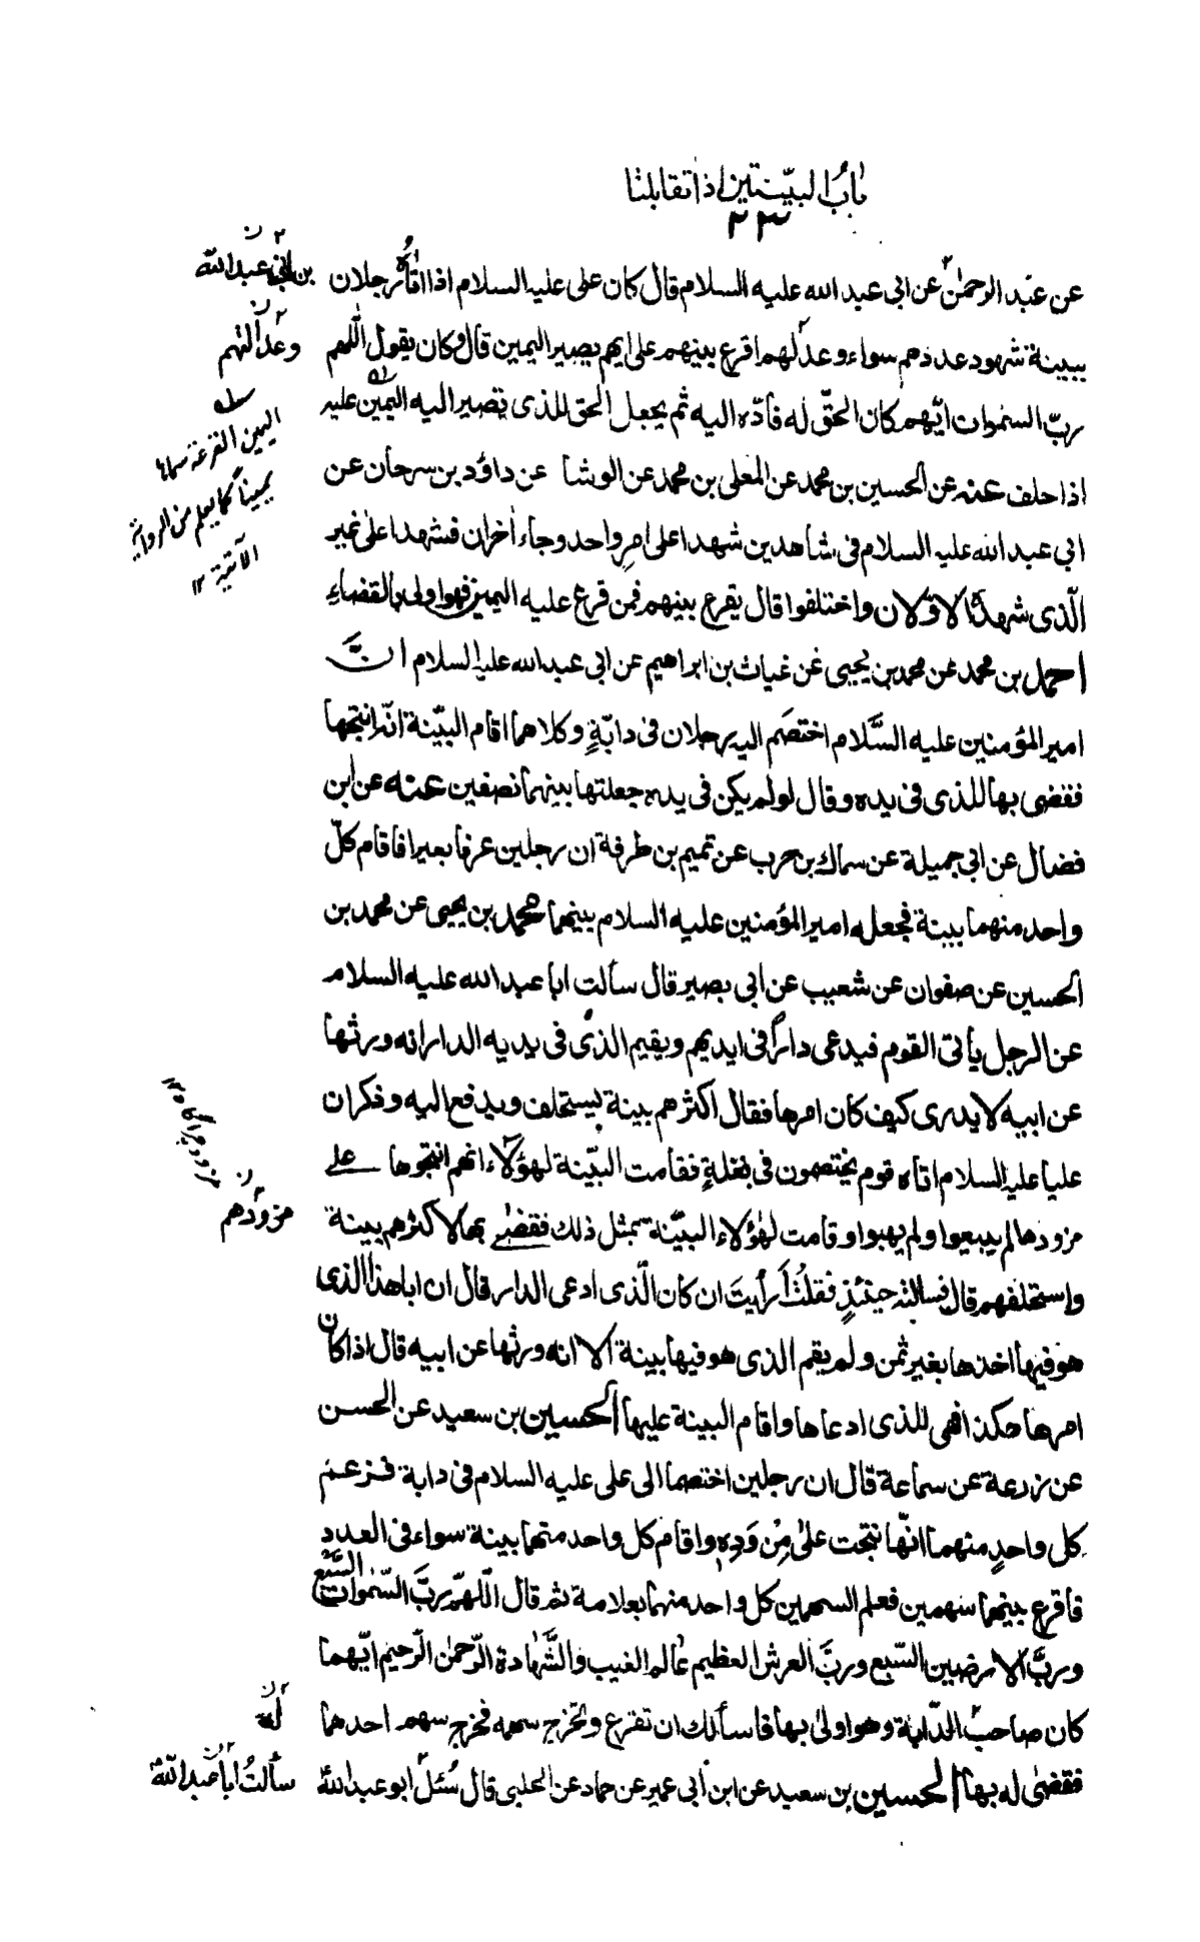 باب البيّنتين اذا تقابلتا
٢٣
عن عبد الرحمٰن عن ابى عبد الله عليه السلام قال كان على عليه السلام اذا اتاه رجلان
ببينة شهود عددهم سواء وعدلهم اقرع بينهم على ايهم يصير اليمين قال وكان يقول اللّهم
ربّ السمٰوات ايّهم كان الحقّ له فادّه اليه ثم يجعل الحق للذى تصير اليه اليمين عليه
اذا حلف عنه عن الحسين بن محمد عن المعلى بن محمد عن الوشا عن داؤد بن سرحان عن
ابى عبد الله عليه السلام فى شاهدين شهدا على امرٍ واحد وجاء اٰخران فشهدا على غير
الّذى شهدا الاوّلان واختلفوا قال يقرع بينهم فمن قرع عليه اليمين فهو اولى بالقضاءِ
احمد بن محمد عن محمد بن يحيى عن غياث بن ابراهيم عن ابى عبد الله عليه السلام انَّ
امير المؤمنين عليه السَّلام اختصَم اليه رجلان فى دابّةٍ وكلاهما اقام البيّنة انّه انتجها
فقضى بها للذى فى يده وقال لو لم يكن فى يده جعلتها بينهما نصفين عنه عن ابن
فضال عن ابى جميلة عن سماك بن حرب عن تميم بن طرفة ان رجلين عرفا بعيرا فاقام كلّ
واحد منهما بينة فجعله امير المؤمنين عليه السلام بينهما محمد بن يحيى عن محمد بن
الحسين عن صفوان عن شعيب عن ابى بصير قال سألت ابا عبد الله عليه السلام
عن الرجل يأتى القوم فيدعى داراً فى ايديهم ويقيم الذى فى يديه الدار انه ورثها
عن ابيه لا يدرى كيف كان امرها فقال اكثرهم بينة يستحلف ويدفع اليه وذكر ان
عليا عليه السلام اتاه قوم يختصمون فى بغلةٍ فقامت البيّنة لهؤلاء انهم انتجوها على
مزودها لم يبيعوا ولم يهبوا وقامت لهٰؤلاء البيّنة بمثل ذلك فقضى بها لاكثرهم بينة
واستحلفهم قال فسالته حينئذٍ فقلتُ أرأيتَ ان كان الّذى ادعى الدار قال ان ابا هذا الذى
هو فيها اخذها بغير ثمن ولم يقم الذى هو فيها بينة الا انه ورثها عن ابيه قال اذا كان
امرها هكذا فهى للذى ادعاها واقام البينة عليها الحسين بن سعيد عن الحسن
عن زرعة عن سماعة قال ان رجلين اختصما الى على عليه السلام فى دابة فزعم
كل واحدٍ منهما انّها نتجت علىٰ مِزوَدِه واقام كل واحد منهما بينة سواء فى العدد
فاقرع بينهما سهمين فعلم السهمين كل واحد منهما بعلامة ثم قال اللّهمّ ربَّ السّمٰوات السَّبْع
وربَّ الارضين السّبع وربَّ العرش العظيم عٰالم الغيب والشَّهٰادة الرّحمٰن الرّحيم ايّهما
كان صاحب الدّابة وهو اولىٰ بها فاسألك ان تقرع وتخرج سهمه فخرج سهم احدهما
فقضىٰ له بها الحسين بن سعيد عن ابن أبى عمير عن حماد عن الحلبى قال سُئل ابو عبد الله
بن ابى عبد الله
وعدالتهم
اليمين القرعة سماها
يميناً كما يعلم من الرواية
الآتية ١٢
مزودهم
له
سألتُ ابا عبد الله